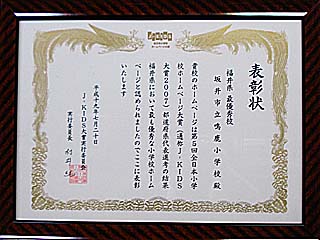 表彰状
福井県 最優秀校
坂井市立鳴鹿小学校 殿
貴校のホームページは第5回全日本小学
校ホームページ大賞(通称J-KIDS
大賞2007)都道府県代表選考の結果
福井県において最も優秀な小学校ホーム
ページと認められましたのでここに表彰
いたします
平成十九年七月二十日
J-KIDS大賞実行委員会
実行委員長